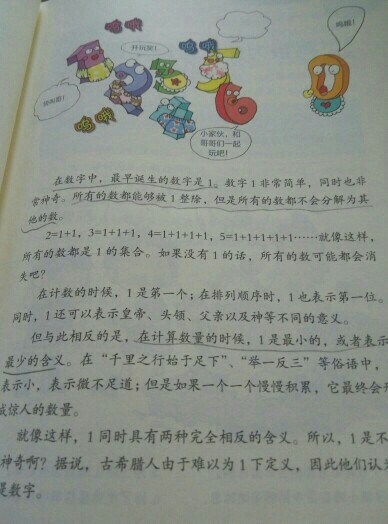 呜哦
开玩笑!
呜哦
呜哦
小家伙,和
哥哥们一起
玩吧!
在数字中,最早诞生的数字是1。数字1非常简单,同时也非
常神奇。所有的数都能够被1整除,但是所有的数都不会分解为其
他的数。
2=1+1,3=1+1+1,4=1+1+1+1,5=1+1+1+1+1……就像这样,
所有的数都是1的集合。如果没有1的话,所有的数可能都会消
失吧?
在计数的时候,1是第一个;在排列顺序时,1也表示第一位。
同时,1还可以表示皇帝、头领、父亲以及神等不同的意义。
但与此相反的是,在计算数量的时候,1是最小的,或者表示
最少的含义。在“千里之行始于足下”、“举一反三”等俗语中,
表示小,表示微不足道;但是如果一个一个慢慢积累,它最终会形
成惊人的数量。
就像这样,1同时具有两种完全相反的含义。所以,1是不
神奇啊?据说,古希腊人由于难以为1下定义,因此他们认为
是数字。